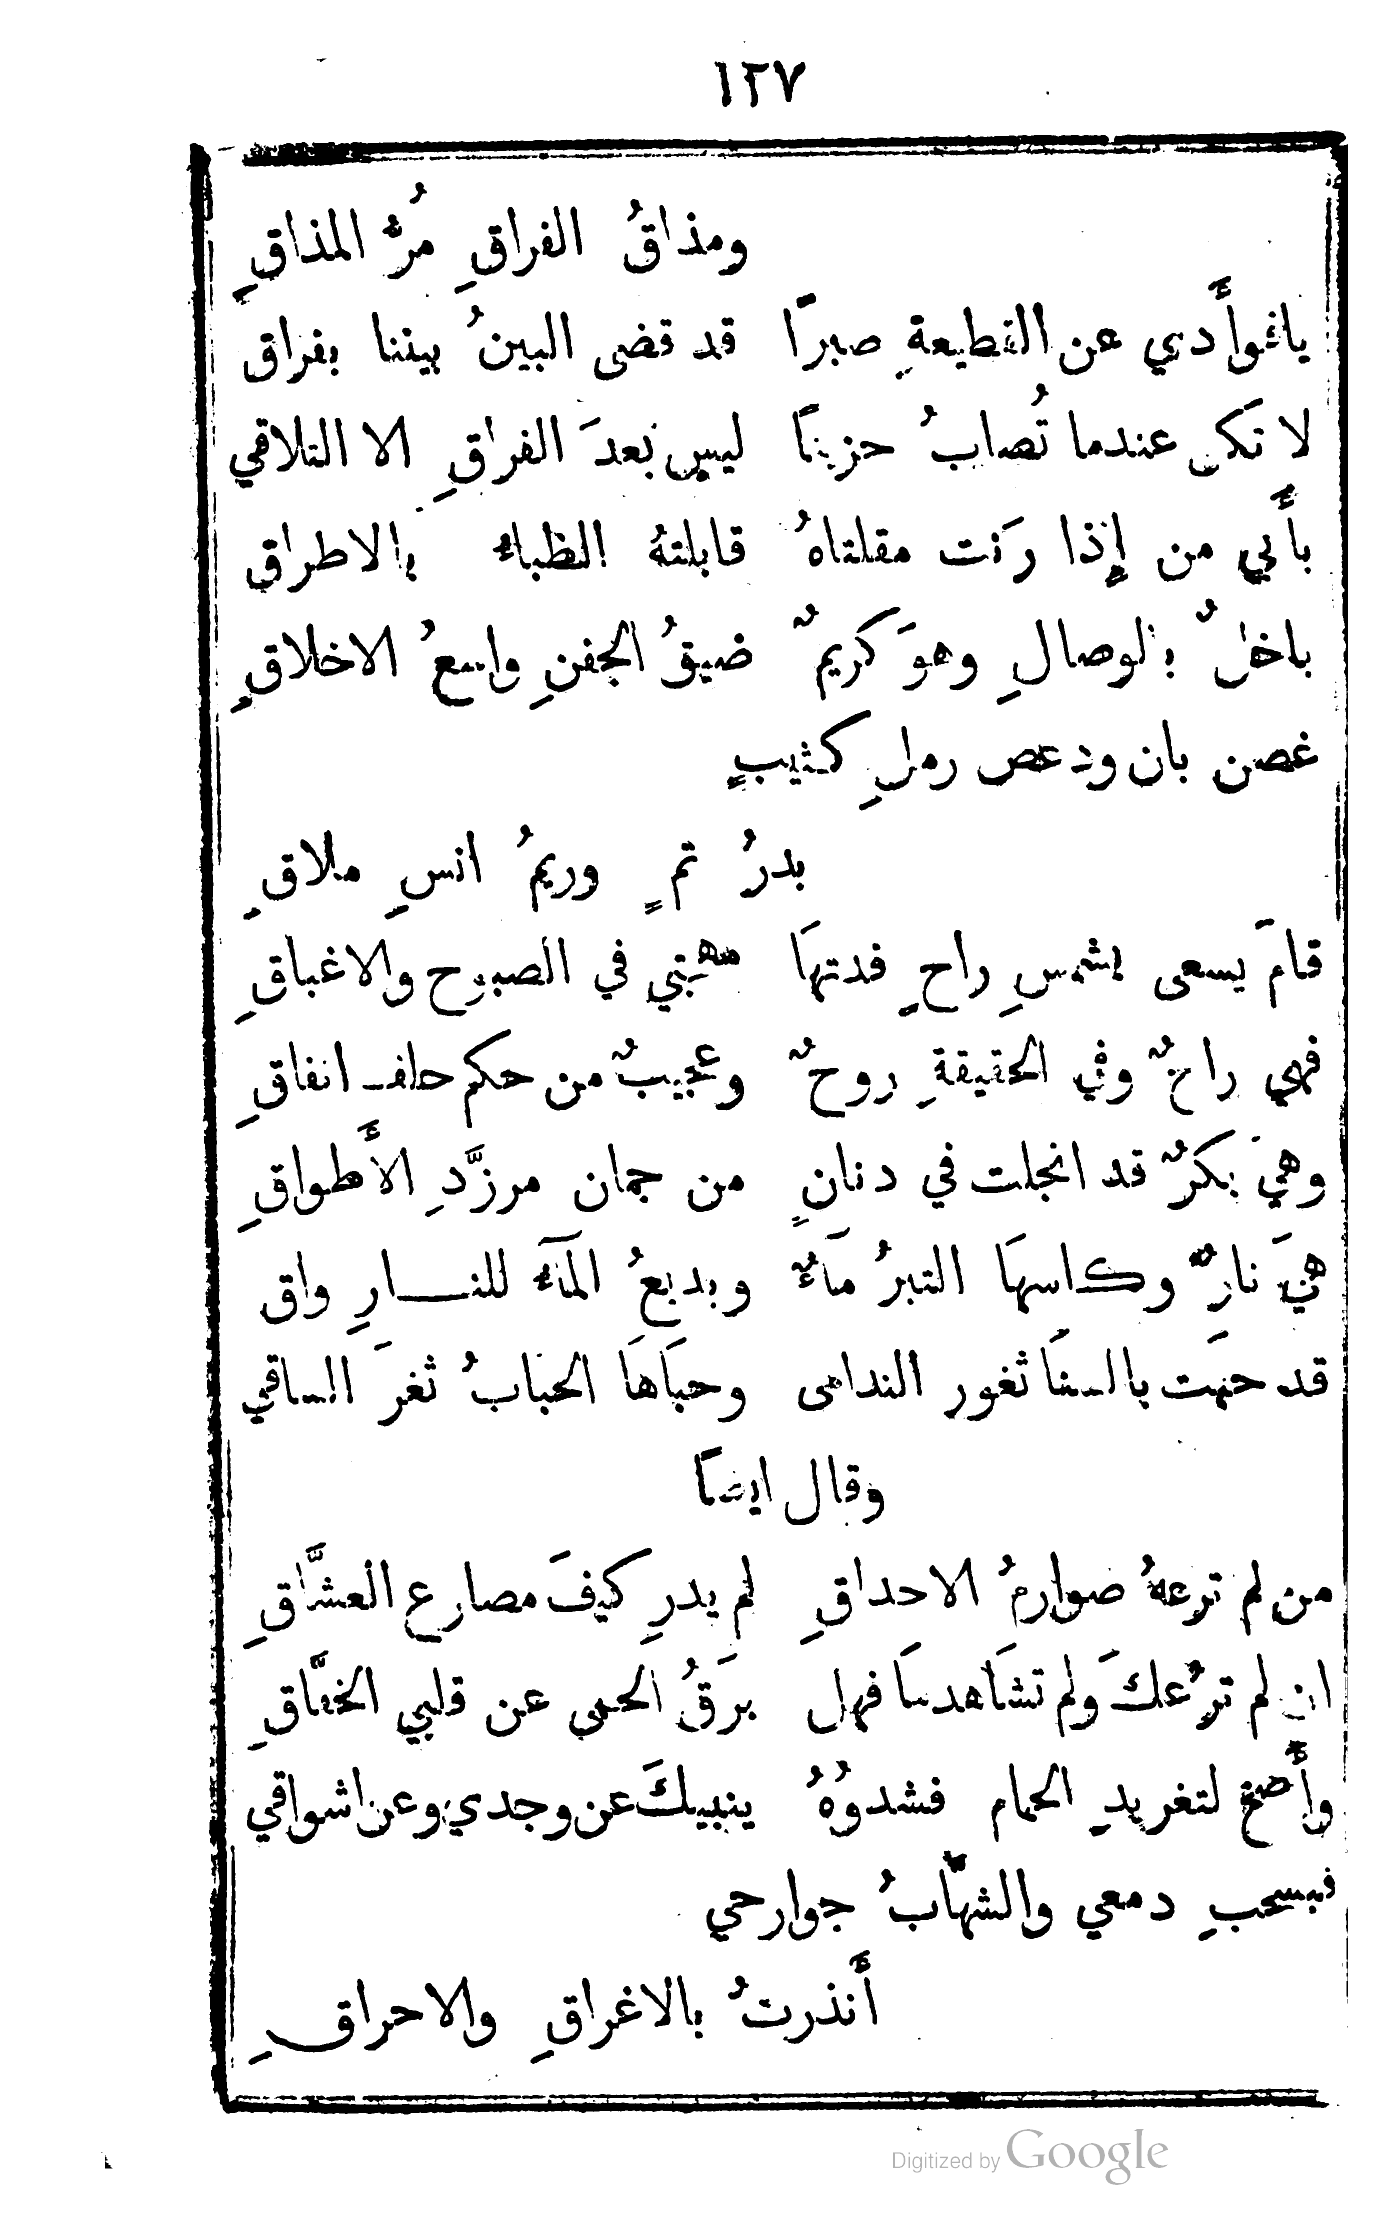 ١٢٧
ومذاقُ الفراقِ مُرُّ المذاقِ
يافوأَدي عن القطيعةِ صبرًا قد قضى البينُ بيننا بفراق
لا تَكن عندما تُصابُ حزينًا ليس بَعدَ الفراقِ الا التلاقي
بأَبي من إِذا رَنت مقلتاهُ قابلتهُ الظباء بالاطراق
باخلٌ بالوصالِ وهوَ كريمٌ ضيقُ الجفنِ واسعُ الاخلاقِ
غصن بان ودعص رملِ كثيبٍ
بدرُ تمٍ وريمُ انسِ ملاقِ
قامَ يسعى بشمسِ راحٍ فدتهَا مهجتي في الصبوح والاغباقِ
فهي راحٌ وفي الحقيقةِ روحٌ وعجيبٌ من حكم حلف انفاقِ
وهيَ بكرٌ قد انجلت في دنانٍ من جمان مرزَّدِ الأَطواقِ
هيَ نارٌ وكاسهَا التبرُ مَاءٌ وبديعُ المآء للنــارِ واق
قد حمَت بالسنَا ثغور الندامى وحبَاهَا الحبابُ ثغرَ الساقي
وقال ايضًا
من لم ترعهُ صوارمُ الاحداقِ لم يدرِ كيفَ مصارع العشَّاقِ
ان لم ترُعكَ ولم تشَاهدهَا فهل برَقُ الحمى عن قلبي الخفَّاقِ
وأَصخ لتغريدِ الحمام فشدوُهُ ينبيكَ عن وجدي وعن اشواقي
فبسحبِ دمعي والشهَّابُ جوارحي
أَنذرتُ بالاغراقِ والاحراقِ
Digitized by Google